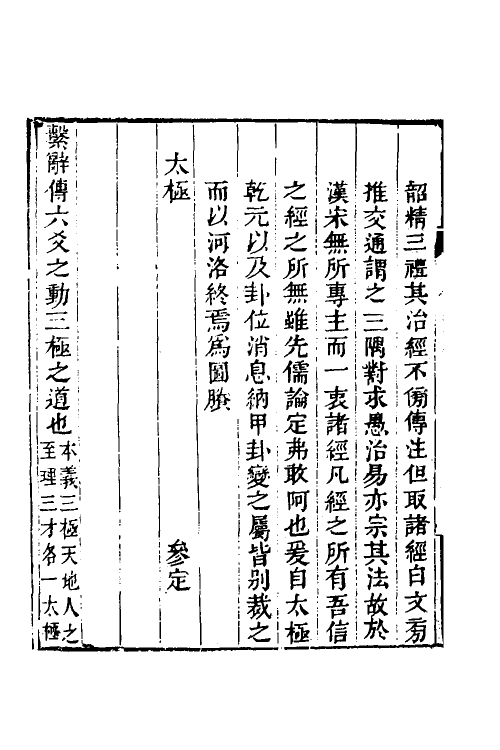 韶精三禮其治經不傍傳注但取諸經白文旁
推交通謂之三隅對求愚治易亦宗其法故於
漢宋無所專主而一衷諸經凡經之所有吾信
之經之所無雖先儒論定弗敢阿也爰自太極
乾元以及卦位消息納甲卦變之屬皆別裁之
而以河洛終焉為圖賸
太極　參定
繫辭傳六爻之動三極之道也本義三極天地人之
至理三才各一太極